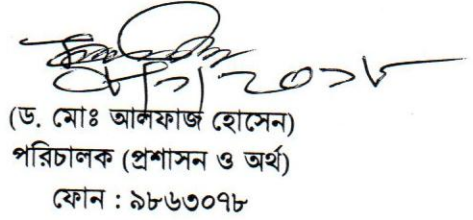 (ড. মোঃ আলফাজ হোসেন)
পরিচালক (প্রশাসন ও অর্থ)
ফোন : ৯৮৬৩০৭৮